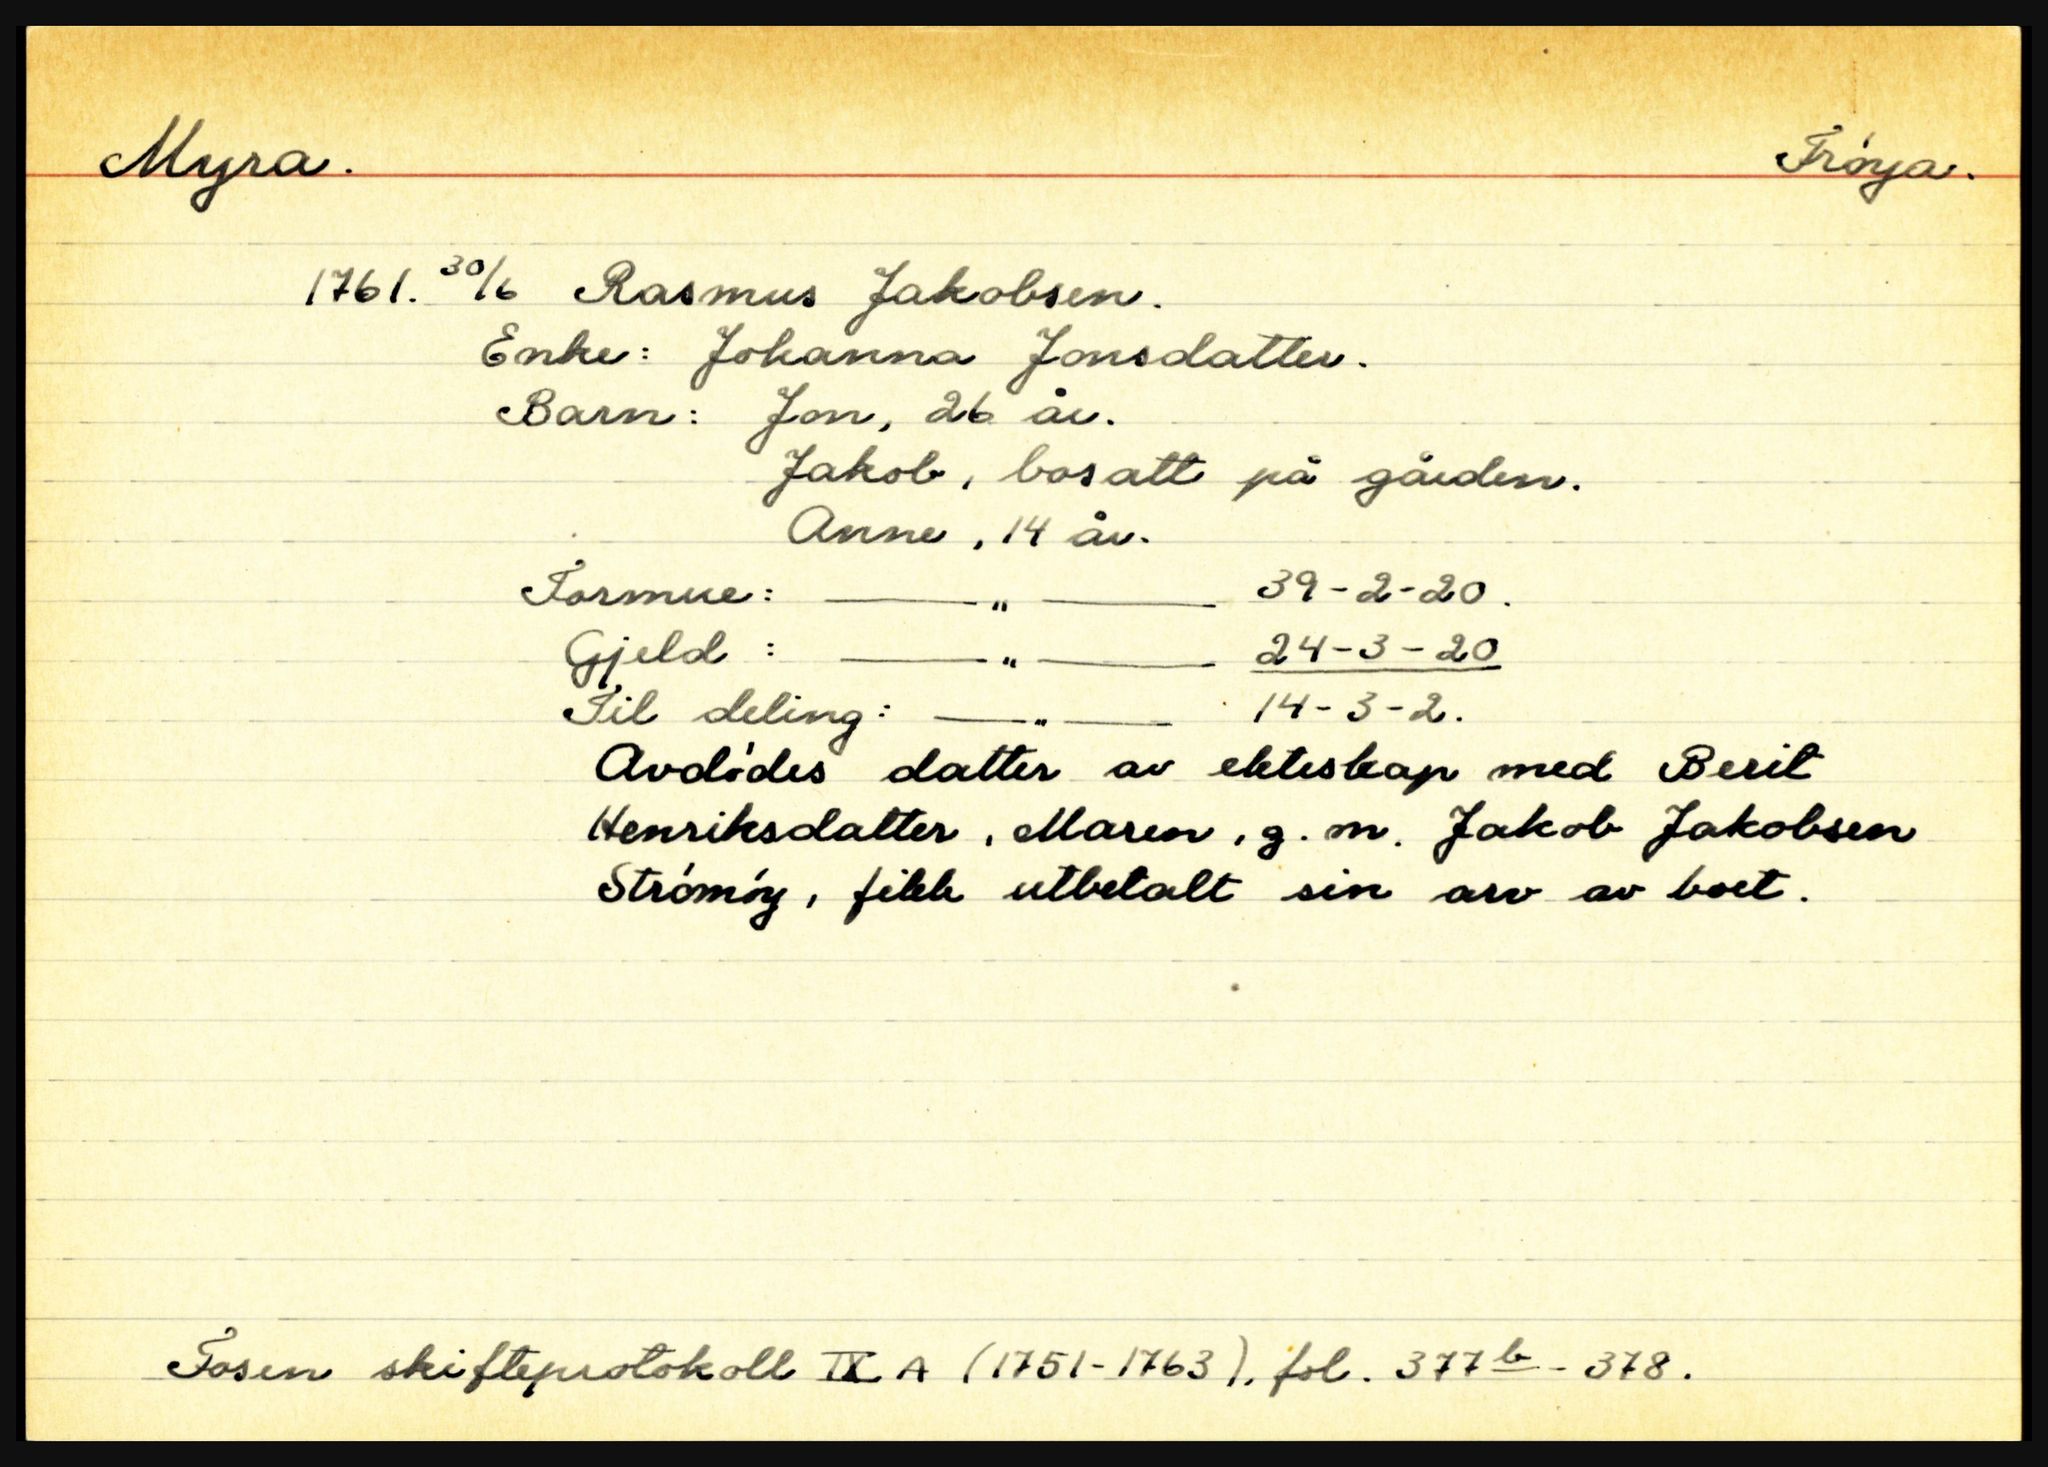 Myra. Frøya.
1761. 30/6 Rasmus Jakobsen.
Enke: Johanna Jonsdatter.
Barn: Jon, 26 år.
Jakob, bosatt på gården.
Anne, 14 år.
Formue: — " — 39-2-20.
Gjeld: — " — 24-3-20
Til deling: — " — 14-3-2.
Avdødes datter av ekteskap med Berit
Henriksdatter, Maren, g. m. Jakob Jakobsen
Strömöy, fikk utbetalt sin arv av boet.
Fosen skifteprotokoll IX A (1751-1763), fol. 377b - 378.